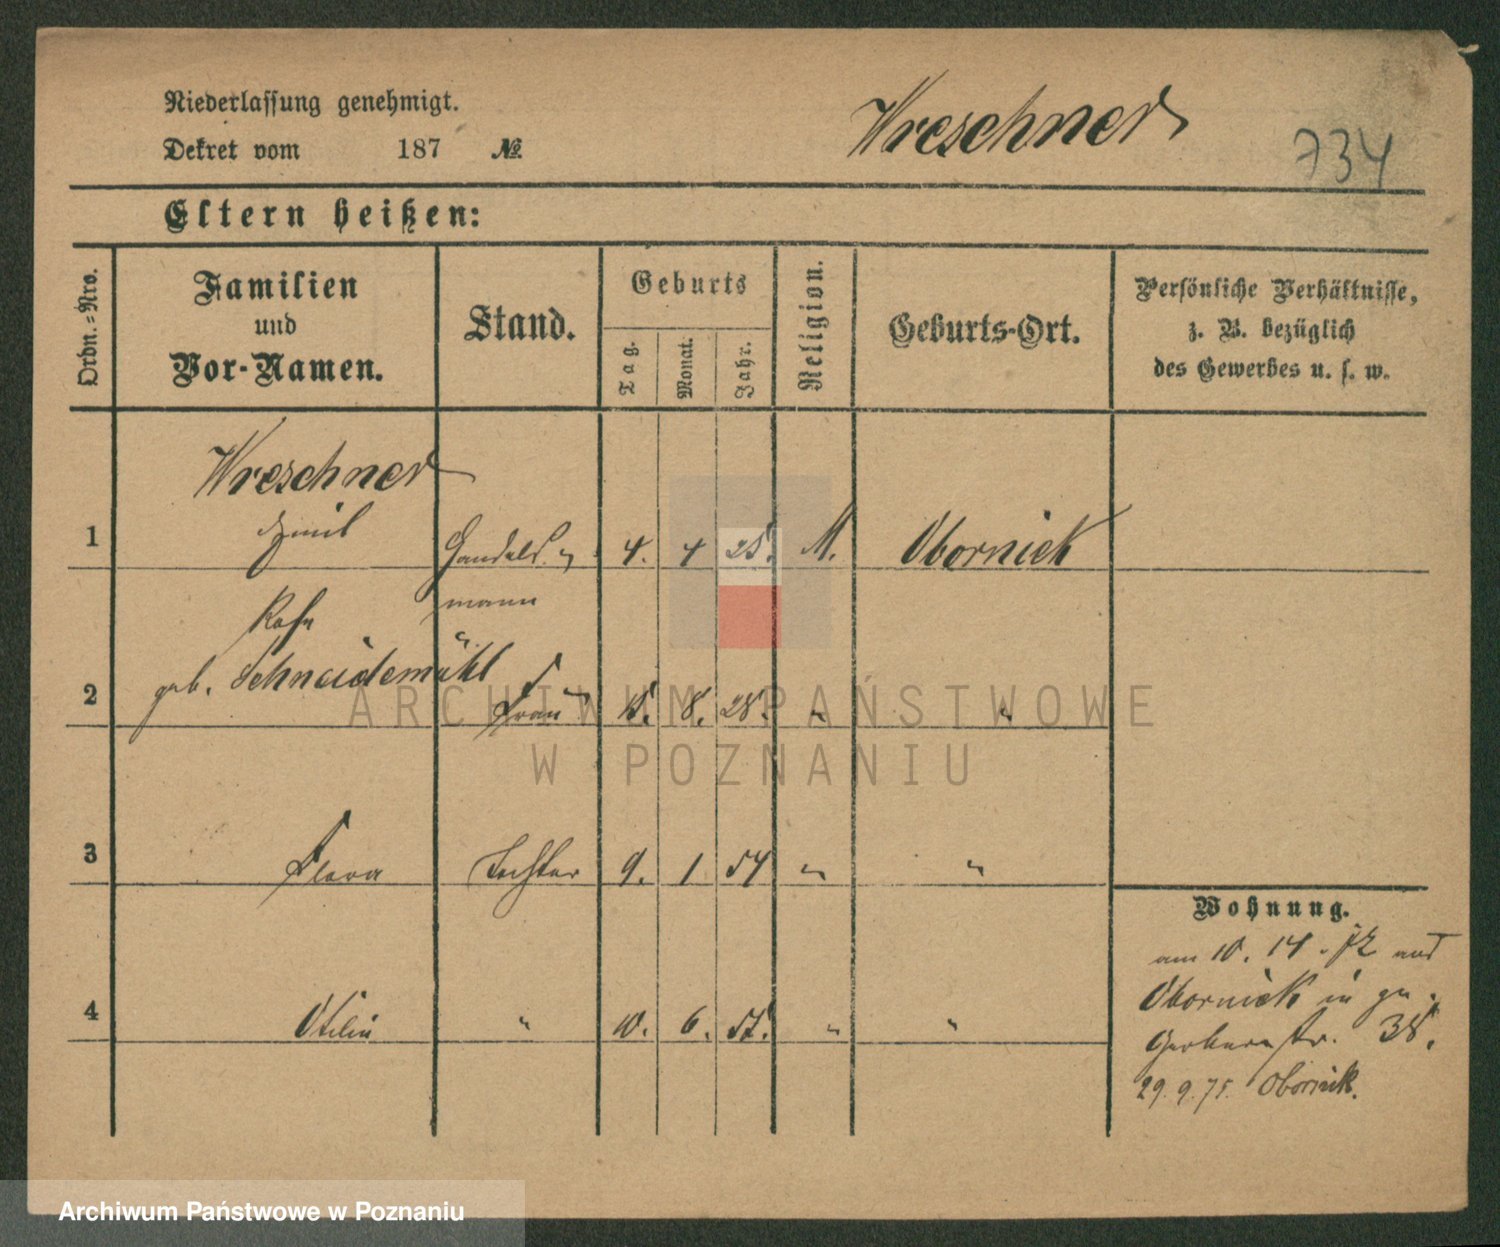 Niederlassung genehmigt.
Dekret vom 187 №
Wreschner
734
Eltern heißen:
Ordn.-Nro.
Familien und Vor-Namen.
Stand.
Geburts
Tag.
Monat.
Jahr.
Religion.
Geburts-Ort.
Persönliche Verhältnisse,
z. B. bezüglich
des Gewerbes u. s. w.
Wreschner
1 Emil Handels 4. 4 25. M. Obornick
mann
geb. Schneidemühl
2 Frau 18. 8. 28. " "
3 Flora Tochter 9. 1 54 " "
4 Otilie " 10. 6. 57. " "
Wohnung.
am 10. 14. 72 aus
Obornick in
Gerberstr. 38.
29. 9. 75. Obornick.
ARCHIWUM PAŃSTWOWE
W POZNANIU
Archiwum Państwowe w Poznaniu